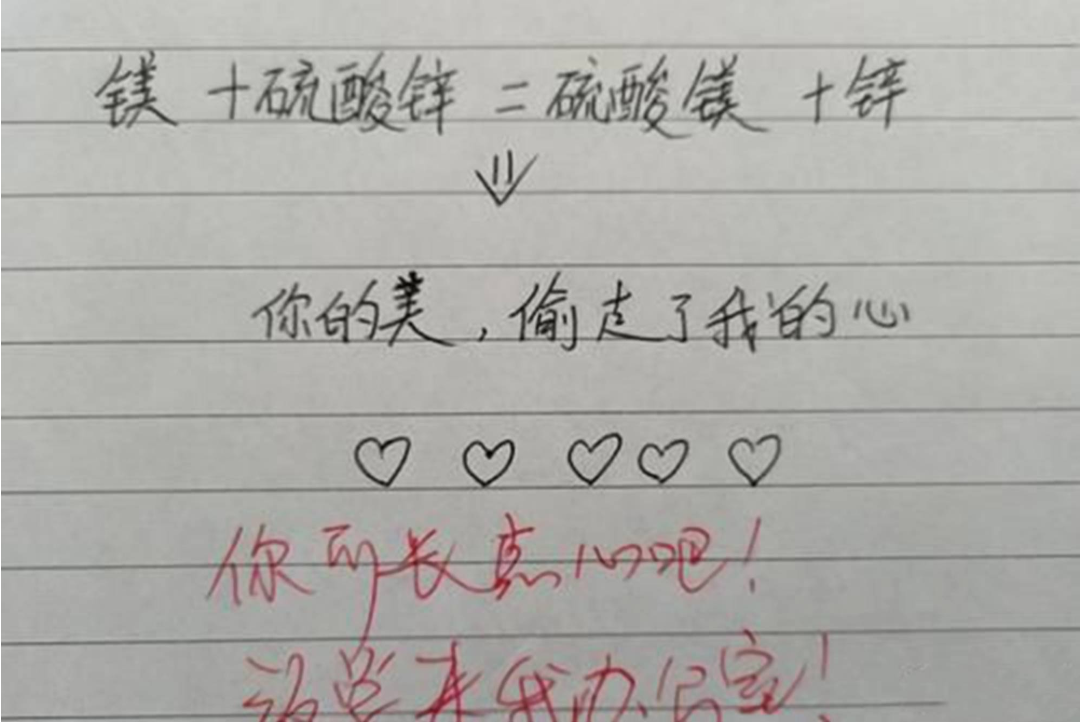 镁+硫酸锌=硫酸镁+锌
你的美,偷走了我的心
你可长点心吧!
放学来我办公室!